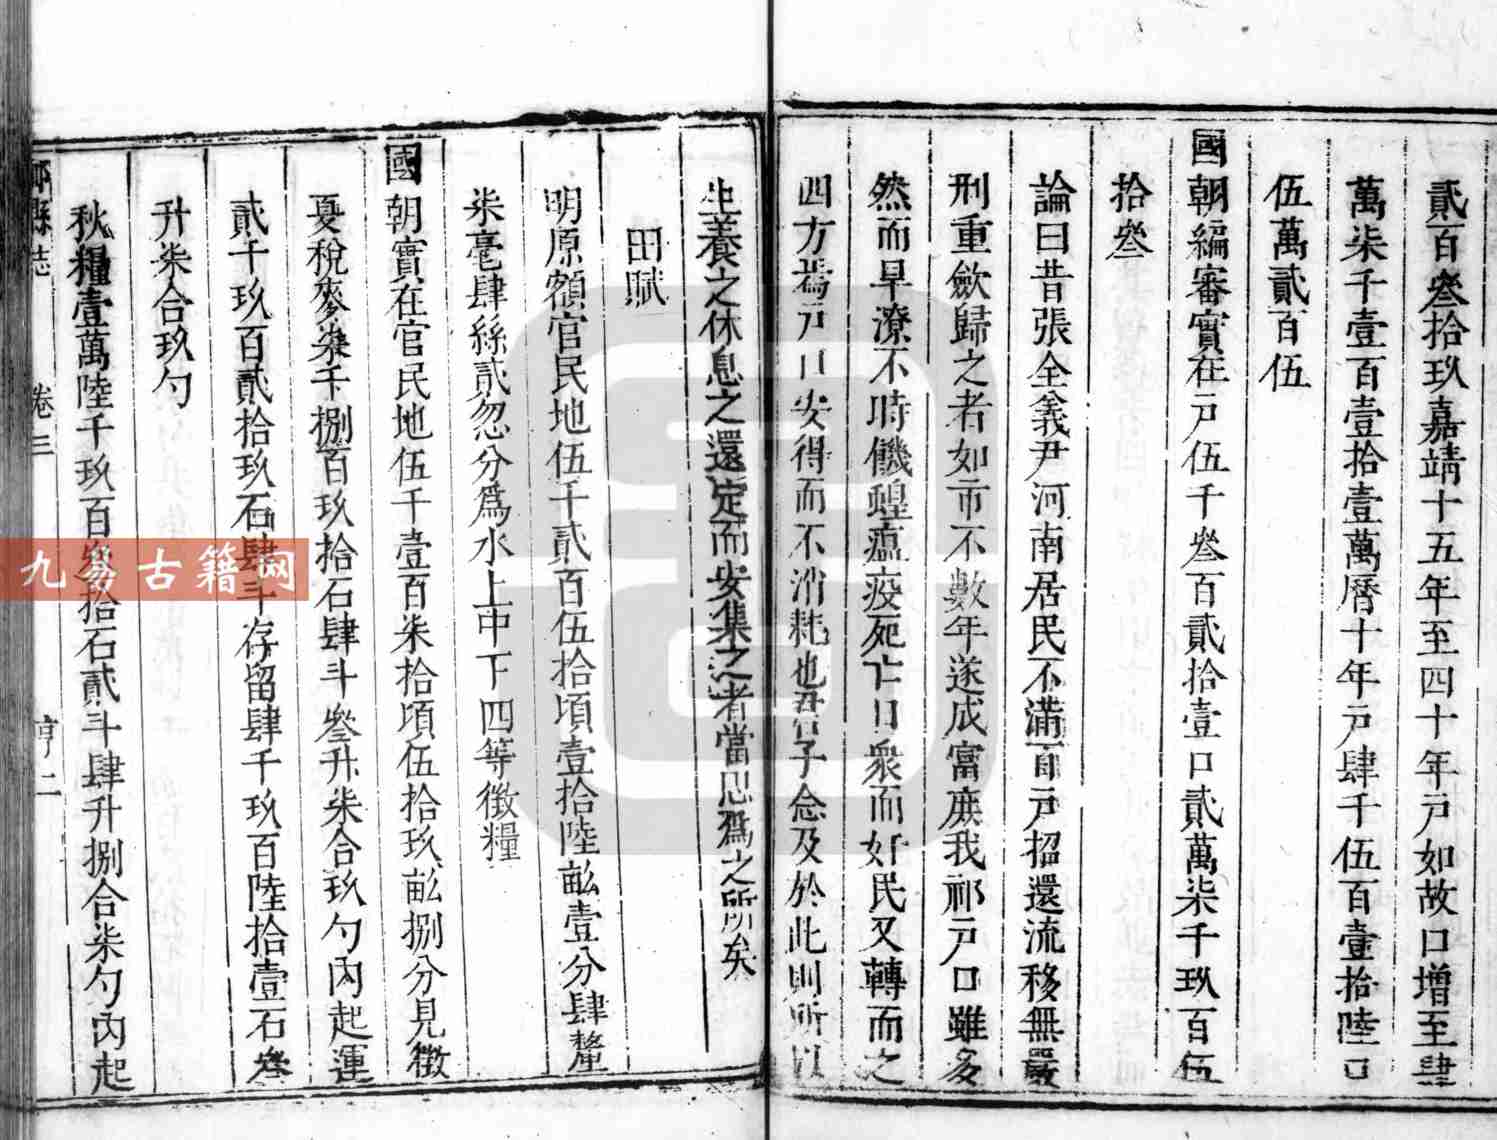 貳百叄拾玖嘉靖十五年至四十年戸如故口增至肆
萬柒千壹百壹拾壹萬曆十年戸肆千伍百壹拾陸口
伍萬貳百伍
國朝編審實在戸伍千叄百貳拾壹口貳萬柒千玖百伍
拾叄
論曰昔張全義尹河南居民不滿百戸招還流移無嚴
刑重斂歸之者如市不數年遂成富庶我祁戸口雖多
然而旱潦不時饑蝗瘟疫死亡日衆而奸民又轉而之
四方焉戸口安得而不消耗也君子念及於此則所以
生養之休息之還定而安集之者當思爲之所矣
田賦
明原額官民地伍千貳百伍拾頃壹拾陸畝壹分肆釐
柒毫肆絲貳忽分爲水上中下四等徵糧
國朝實在官民地伍千壹百柒拾頃伍拾玖畝捌分見徵
夏稅麥柒千捌百玖拾石肆斗叄升柒合玖勺內起運
貳千玖百貳拾玖石肆斗存留肆千玖百陸拾壹石叄
升柒合玖勺
秋糧壹萬陸千玖百叄拾石貳斗肆升捌合柒勺內起
祁縣志 卷三 亨二
九易古籍网